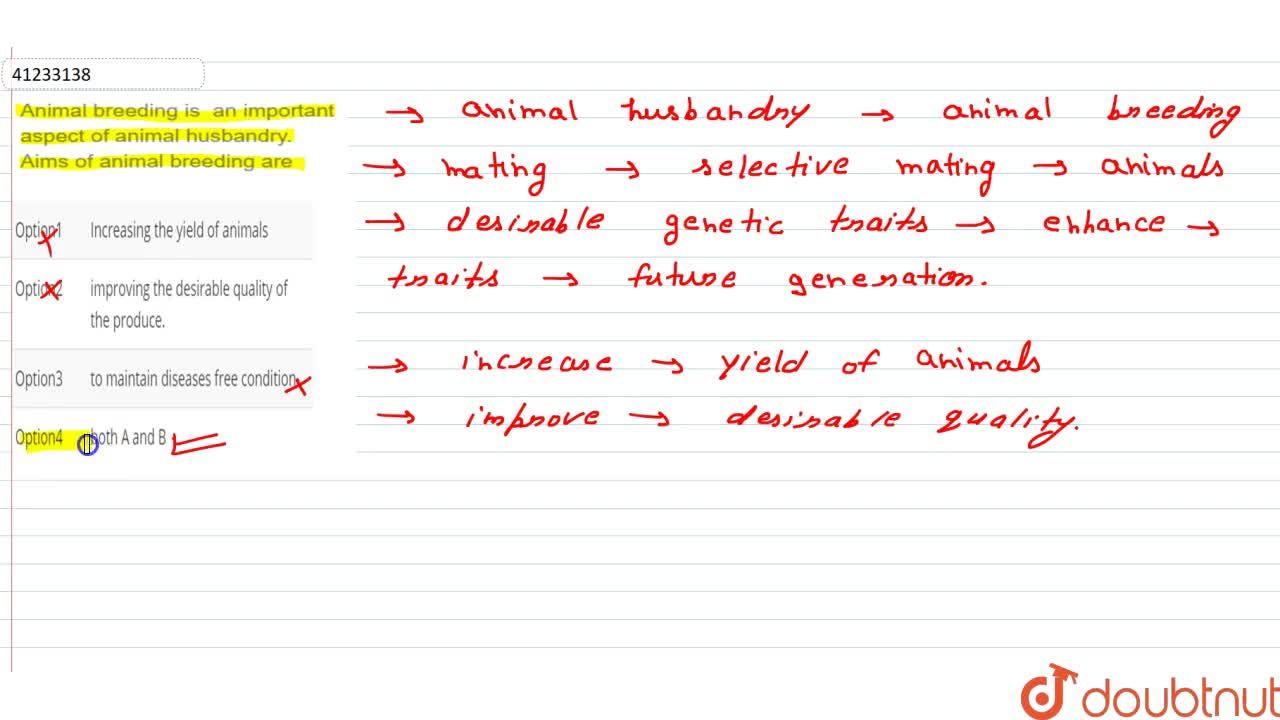 41233138
Animal breeding is an important
aspect of animal husbandry.
Aims of animal breeding are
Option1 Increasing the yield of animals
Option2 improving the desirable quality of
the produce.
Option3 to maintain diseases free condition
Option4 both A and B
→ animal husbandry → animal breeding
→ mating → selective mating → animals
→ desirable genetic traits → enhance →
traits → future generation.
→ increase → yield of animals
→ improve → desirable quality.
doubtnut